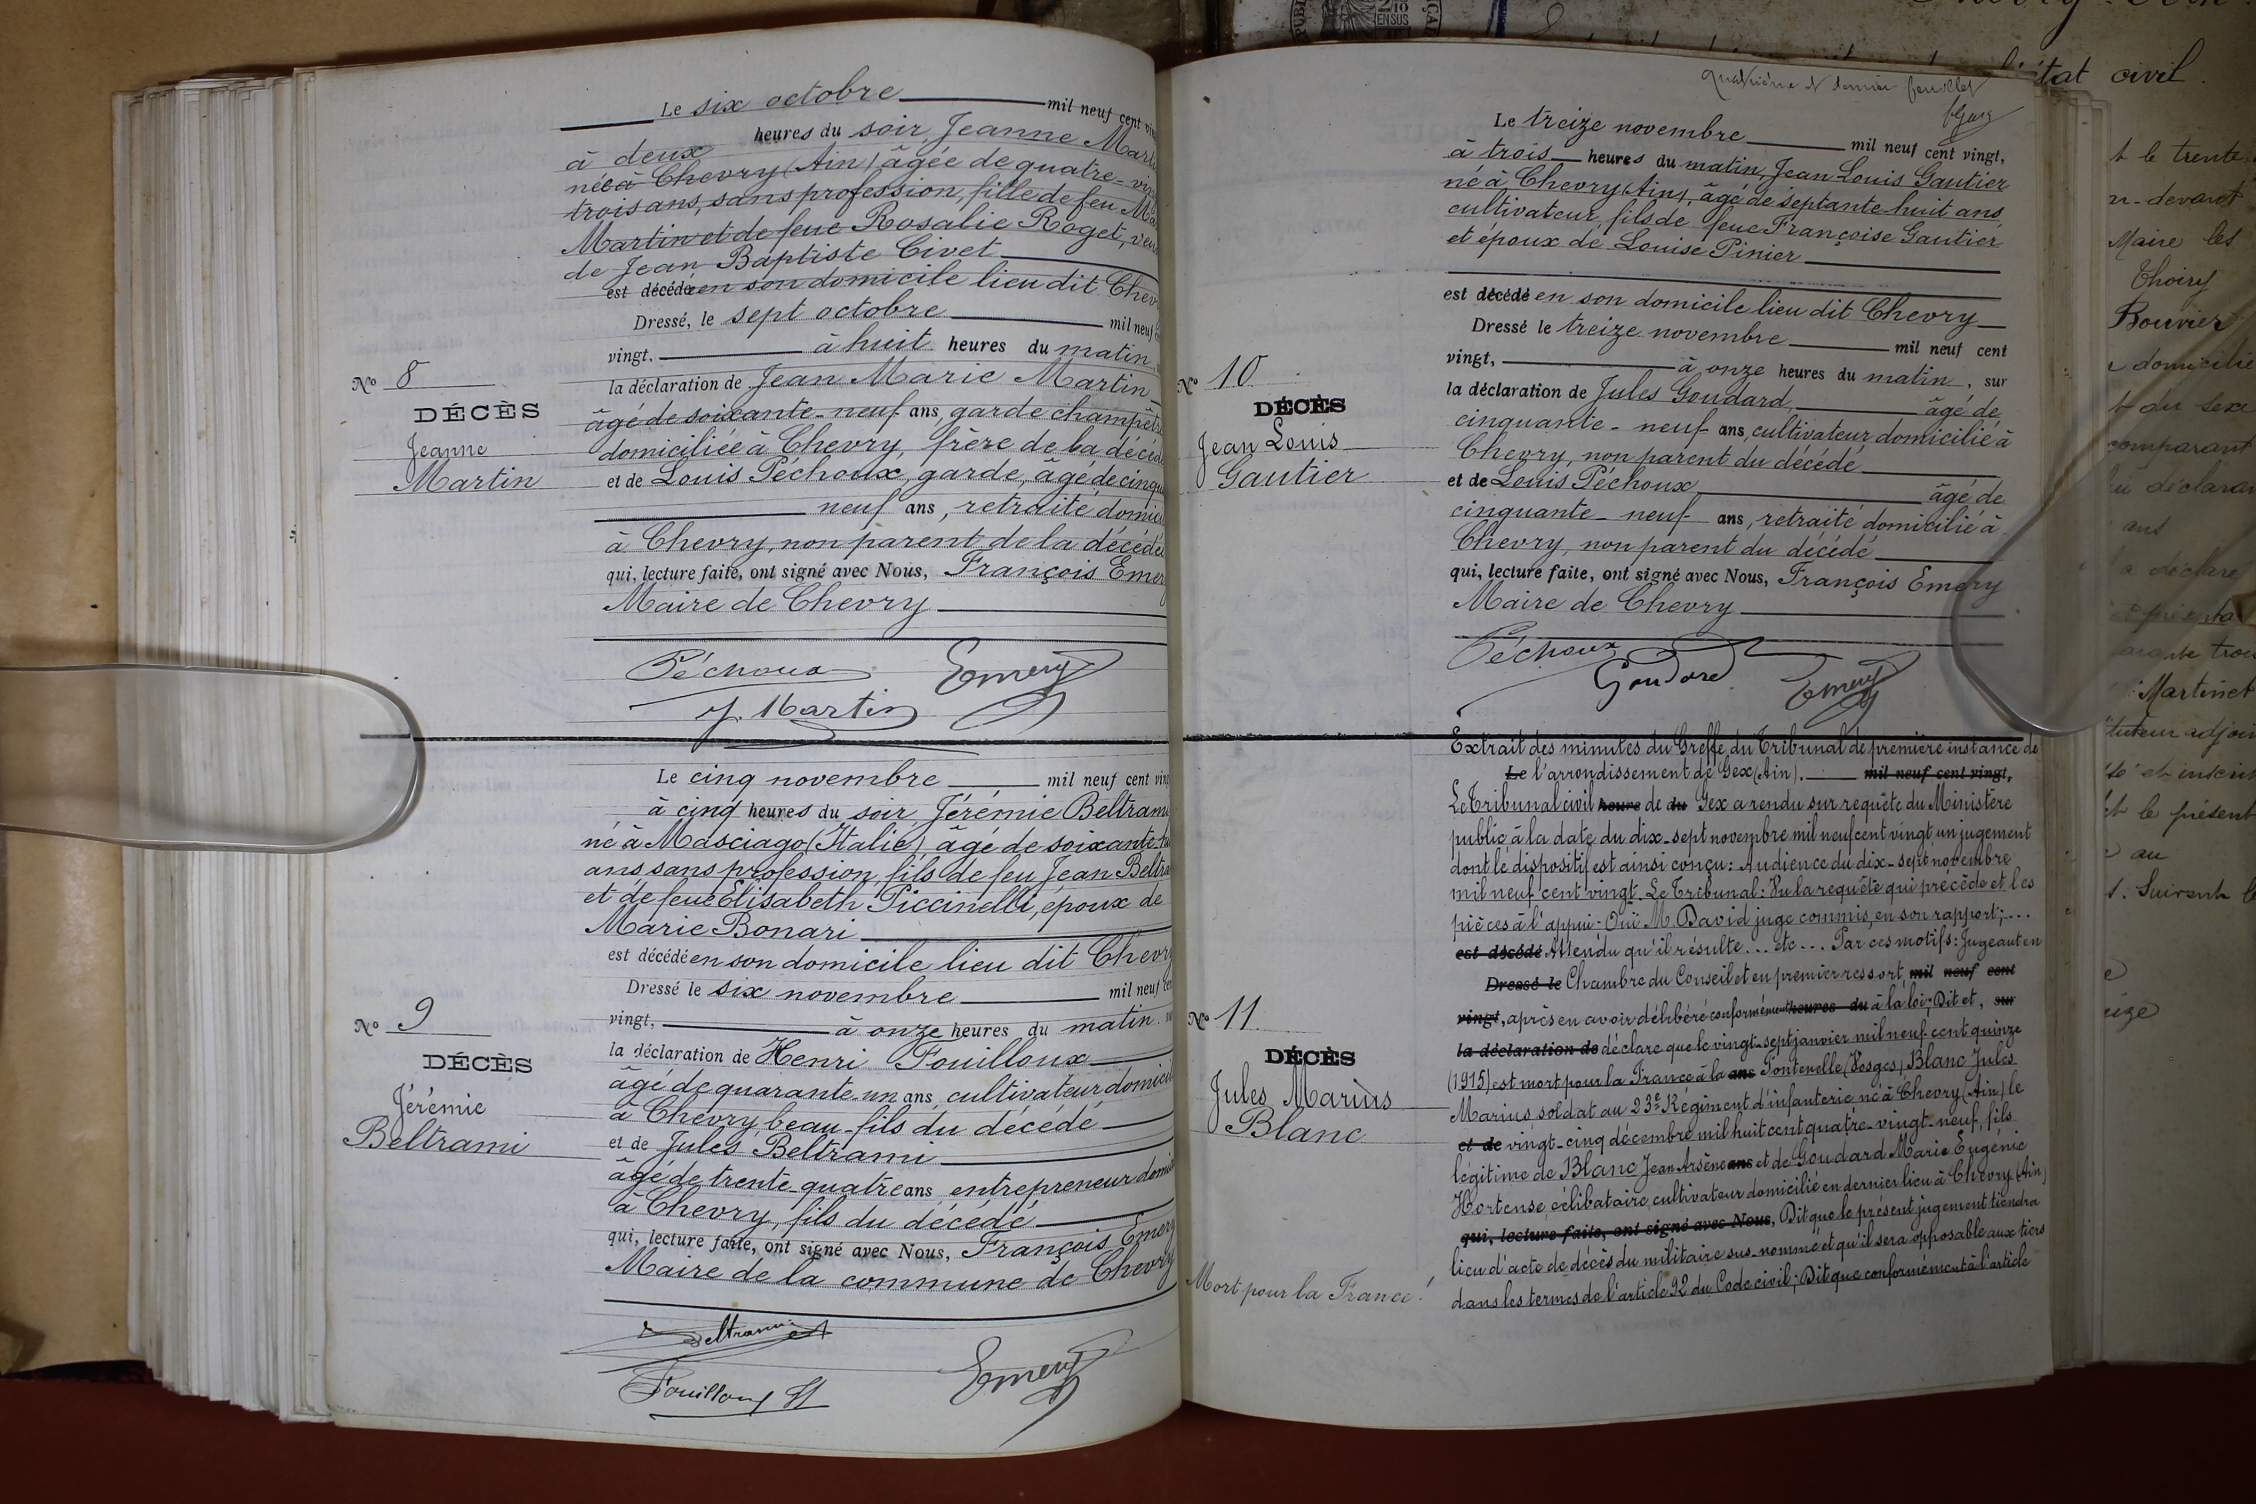 Le six octobre mil neuf cent
à deux heures du soir, Jeanne
née à Chevry (Ain) âgée de quatre-
trois ans, sans profession, fille de feu
Martin et de feue Rosalie Roget,
de Jean Baptiste Civet
est décédée en son domicile lieu dit
Dressé, le sept octobre mil neuf
vingt, à huit heures du matin
la déclaration de Jean Marie Martin
âgé de soixante-neuf ans, garde
domiciliée à Chevry, frère de la
et de Louis Péchoux, garde, âgé de
neuf ans, retraité
à Chevry, non parent de la décédée
qui, lecture faite, ont signé avec Nous, François
Maire de Chevry
No 8
DÉCÈS
Jeanne
Martin
Péchoux Emery
J. Martin
Le cinq novembre mil neuf cent
à cinq heures du soir, Jérémie
né à Masciago (Italie) âgé de
ans sans profession, fils de feu Jean
et de feue Elisabeth Piccinelli, époux de
Marie Bonari
est décédé en son domicile lieu dit
Dressé le six novembre mil neuf
vingt, à onze heures du matin
la déclaration de Henri Fouilloux
âgé de quarante-un ans, cultivateur
à Chevry, beau-fils du décédé
et de Jules Beltrami
âgé de trente-quatre ans, entrepreneur
à Chevry, fils du décédé
qui, lecture faite, ont signé avec Nous, François
Maire de la commune de Chevry
No 9
DÉCÈS
Jérémie
Beltrami
Beltrami
Fouilloux H Emery
Quatrième et dernier feuillet
Le treize novembre mil neuf cent vingt,
à trois heures du matin, Jean Louis Gautier
né à Chevry (Ain), âgé de septante-huit ans
cultivateur fils de feue Françoise Gautier
et époux de Louise Pinier
est décédé en son domicile lieu dit Chevry
Dressé le treize novembre mil neuf cent
vingt, à onze heures du matin, sur
la déclaration de Jules Goudard, âgé de
cinquante-neuf ans, cultivateur domicilié à
Chevry, non parent du décédé
et de Louis Péchoux âgé de
cinquante-neuf ans, retraité domicilié à
Chevry, non parent du décédé
qui, lecture faite, ont signé avec Nous, François Emery
Maire de Chevry
No 10
DÉCÈS
Jean Louis
Gautier
Péchoux
Goudard Emery
Extrait des minutes du Greffe du Tribunal de première instance de
Le l'arrondissement de Gex (Ain). mil neuf cent vingt,
Le Tribunal civil heure de du Gex a rendu sur requête du Ministère
public à la date du dix-sept novembre mil neuf cent vingt un jugement
dont le dispositif est ainsi conçu: Audience du dix-sept novembre
mil neuf cent vingt. Le Tribunal: Vu la requête qui précède et les
pièces à l'appui- Ouï M. David juge commis, en son rapport;...
est décédé Attendu qu'il résulte... etc... Par ces motifs: Jugeant en
Dressé le Chambre du Conseil et en premier ressort mil neuf cent
vingt, après en avoir délibéré conformément heures du à la loi; Dit et, sur
la déclaration de déclare que le vingt-sept janvier mil neuf cent quinze
(1915) est mort pour la France à la ans Fontenelle (Vosges) Blanc Jules
Marius soldat au 23e Régiment d'infanterie né à Chevry (Ain) le
et de vingt-cinq décembre mil huit cent quatre-vingt-neuf, fils
légitime de Blanc Jean Arsène ans et de Goudard Marie Eugénie
Hortense, célibataire, cultivateur domicilié en dernier lieu à Chevry (Ain)
qui, lecture faite, ont signé avec Nous, Dit que le présent jugement tiendra
lieu d'acte de décès du militaire sus-nommé et qu'il sera opposable aux tiers
dans les termes de l'article 92 du Code civil; Dit que conformément à l'article
No 11
DÉCÈS
Jules Marius
Blanc
Mort pour la France!
état civil.
t le trente
devant
Maire les
Thoiry
Bouvier
domicilié
t du sexe
comparant
ans
a déclaré
Martinet
adjoint
et le présent
au
Suivent